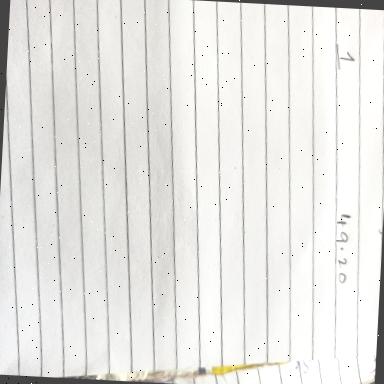 1 49.20